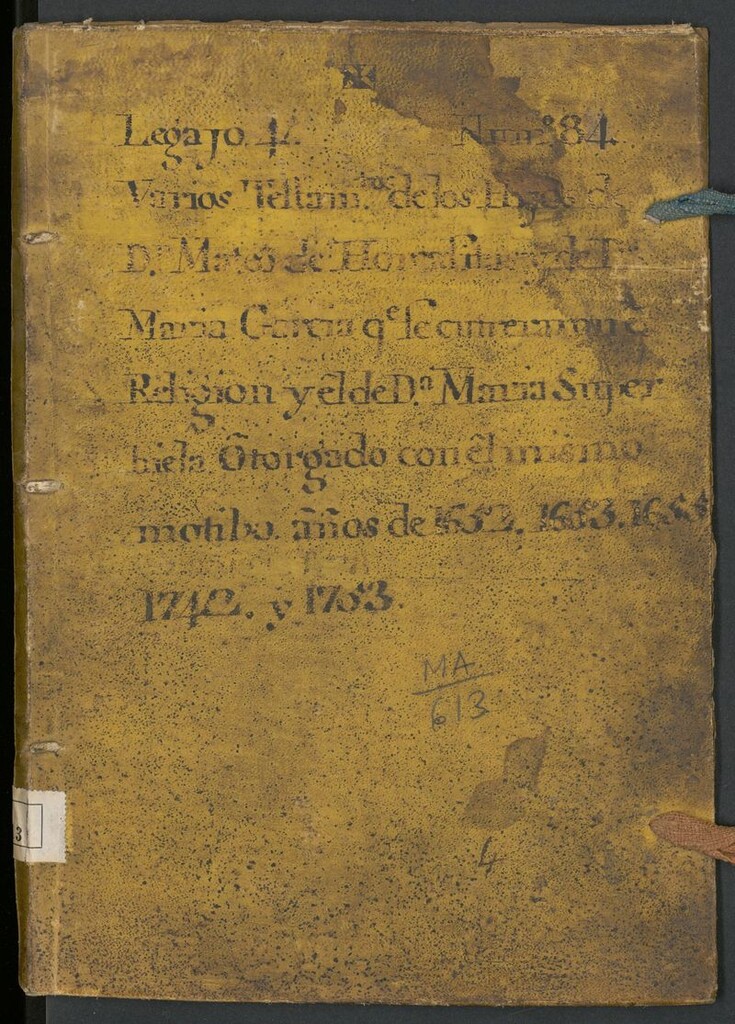 Legajo. 4. Num.º 84.
Varios Testam.tos de los Hijos de
D.n Mateo de y de D.ª
Maria Garcia q.e se entreraron â
Religion y el de D.ª Maria Super
biela Ôtorgado con el mismo
motibo. años de 1652. 1653. 1655
1742. y 1753.
MA
613
4
3